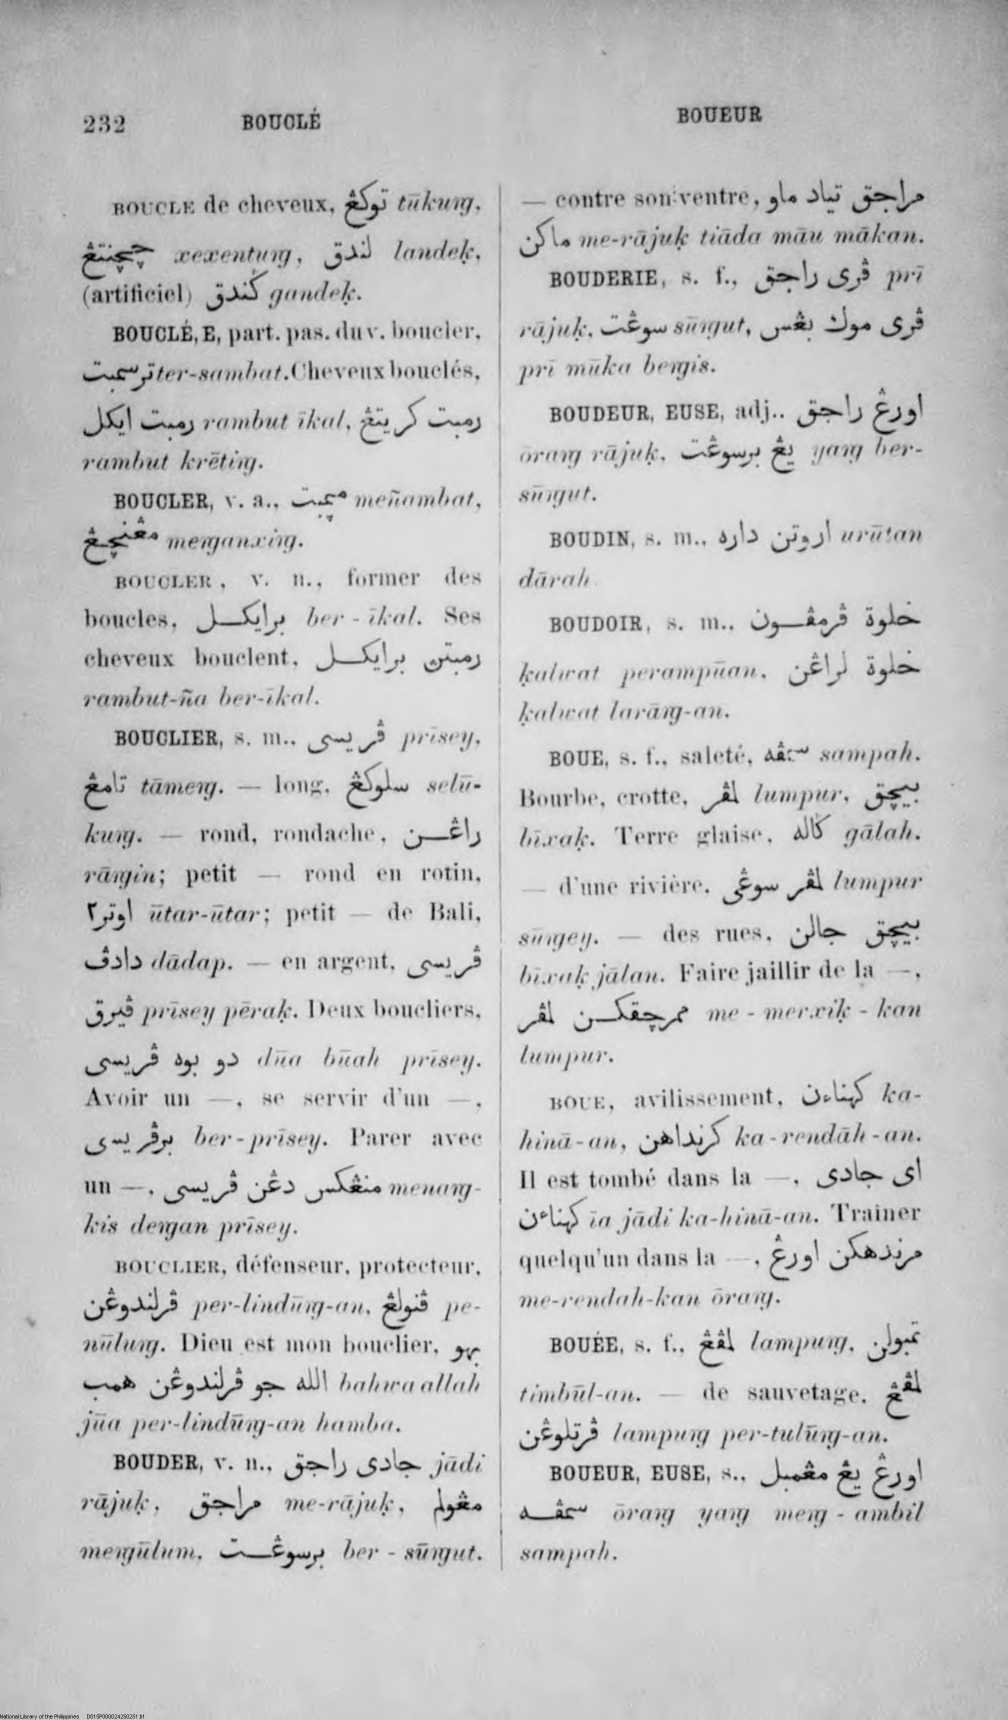 232 BOUCLÉ BOUEUR
BOUCLE de cheveux, توكڠ tūkuṅg,
چچنتڠ xexentuṅg, لندق landeḳ,
(artificiel) ڬندق gandeḳ.
BOUCLÉ, E, part. pas. du v. boucler,
ترسمبت ter-sambat. Cheveux bouclés,
رمبت ايكل rambut īkal, رمبت كريتڠ
rambut krētiṅg.
BOUCLER, v. a., مڽمبت meñambat,
مڠنچڠ meṅganxiṅg.
BOUCLER, v. n., former des
boucles, برايكل ber-īkal. Ses
cheveux bouclent, رمبتن برايكل
rambut-ña ber-īkal.
BOUCLIER, s. m., ڤريسى prīsey,
تامڠ tāmeṅg. — long, سلوكڠ selū-
kuṅg. — rond, rondache, راڠن
rāṅgin; petit — rond en rotin,
اوتر٢ ūtar-ūtar; petit — de Bali,
دادڤ dādap. — en argent, ڤريسى
ڤيرق prīsey pēraḳ. Deux boucliers,
دو بوه ڤريسى dūa būah prīsey.
Avoir un —, se servir d'un —,
برڤريسى ber-prīsey. Parer avec
un —, منڠكس دڠن ڤريسى menaṅg-
kis deṅgan prīsey.
BOUCLIER, défenseur, protecteur,
ڤرلندوڠن per-lindūṅg-an, ڤنولڠ pe-
nūluṅg. Dieu est mon bouclier, بهو
الله جو ڤرلندوڠن همب bahwa allah
jūa per-lindūṅg-an hamba.
BOUDER, v. n., جادى راجق jādi
rājuḳ, مراجق me-rājuḳ, مڠولم
meṅgūlum, برسوڠت ber-sūṅgut.
— contre son ventre, مراجق تياد ماو
ماكن me-rājuḳ tiāda māu mākan.
BOUDERIE, s. f., ڤرى راجق prī
rājuḳ, سوڠت sūṅgut, ڤرى موك بڠس
prī mūka beṅgis.
BOUDEUR, EUSE, adj., اورڠ راجق
ōraṅg rājuḳ, يڠ برسوڠت yaṅg ber-
sūṅgut.
BOUDIN, s. m., اروتن داره urūtan
dārah
BOUDOIR, s. m., خلوة ڤرمڤون
ḳalwat perampūan, خلوة لراڠن
ḳalwat larāṅg-an.
BOUE, s. f., saleté, سمڤه sampah.
Bourbe, crotte, لمڤر lumpur, بيچق
bīxaḳ. Terre glaise, ڬاله gālah.
— d'une rivière, لمڤر سوڠى lumpur
sūṅgey. — des rues, بيچق جالن
bīxaḳ jālan. Faire jaillir de la —,
ممرچقكن لمڤر me-merxiḳ-kan
lumpur.
BOUE, avilissement, كهناءن ka-
hinā-an, كرنداهن ka-rendāh-an.
Il est tombé dans la —, اى جادى
كهناءن īa jādi ka-hinā-an. Traîner
quelqu'un dans la —, مرندهكن اورڠ
me-rendah-kan ōraṅg.
BOUÉE, s. f., لمڤڠ lampuṅg, تمبولن
timbūl-an. — de sauvetage, لمڤڠ
ڤرتلوڠن lampuṅg per-tulūṅg-an.
BOUEUR, EUSE, s., اورڠ يڠ مڠمبل
سمڤه ōraṅg yaṅg meṅg-ambil
sampah.
National Library of the Philippines